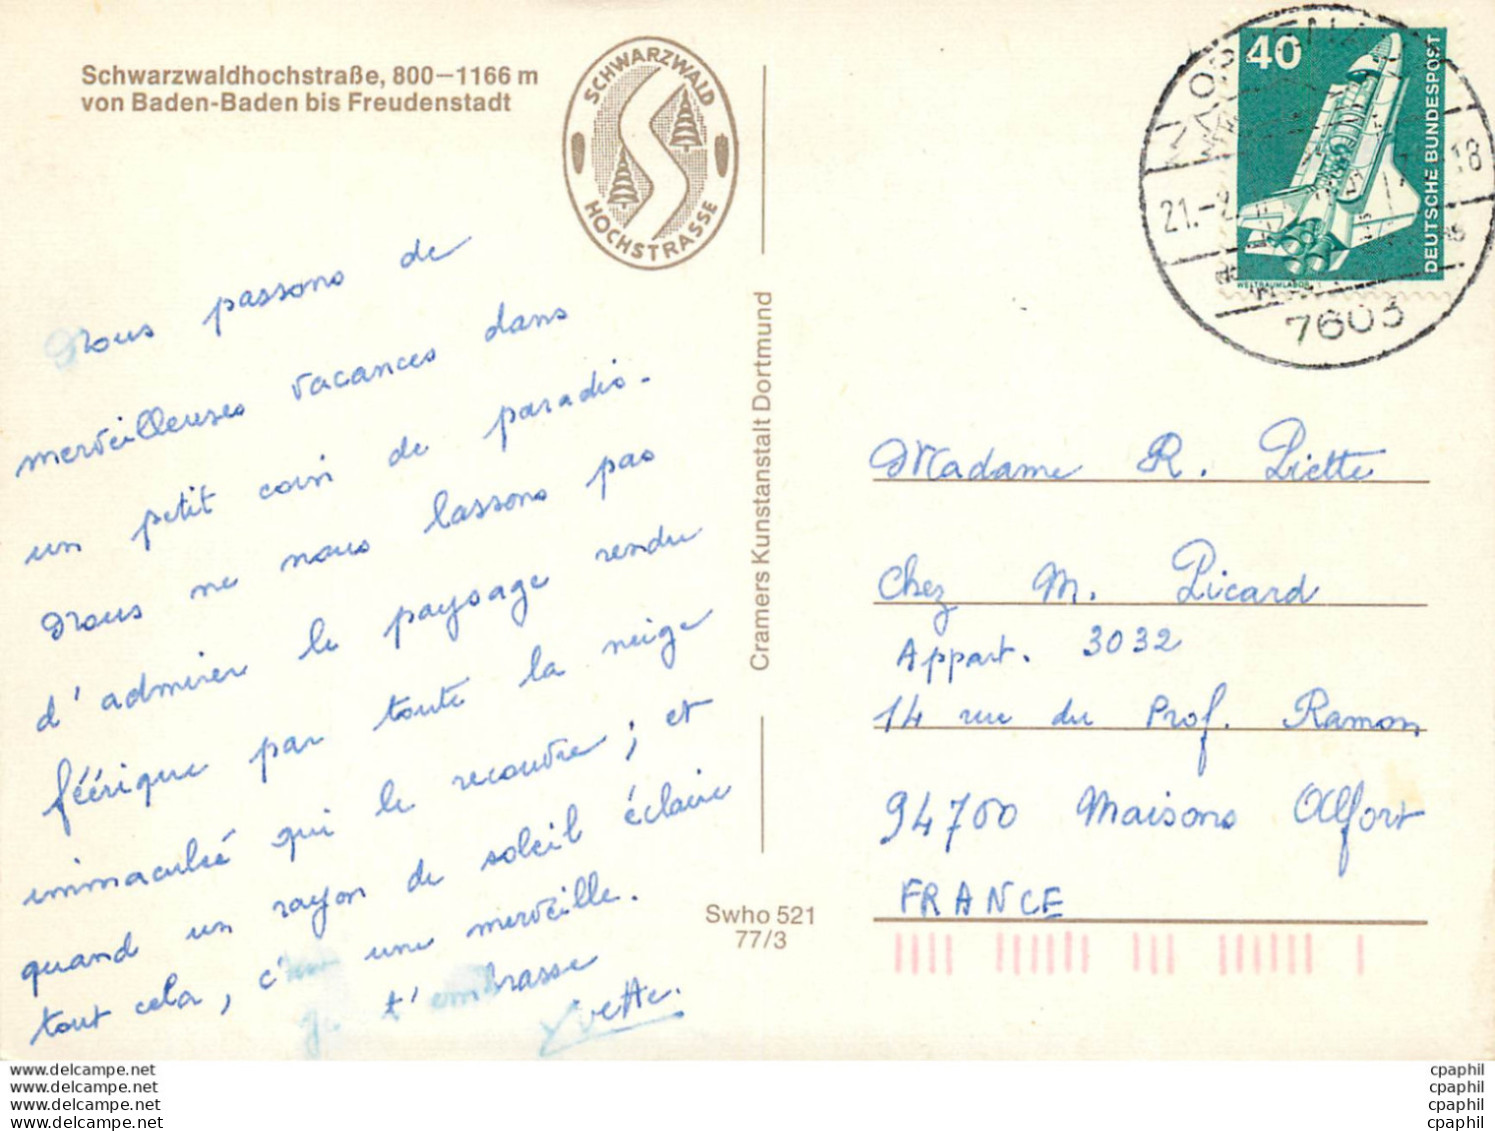 Schwarzwaldhochstraße, 800–1166 m
von Baden-Baden bis Freudenstadt
SCHWARZWALD
HOCHSTRASSE
Nous passons de
merveilleuses vacances dans
un petit coin de paradis.
Nous ne nous lassons pas
d'admirer le paysage rendu
féérique par toute la neige
immaculée qui le recouvre ; et
quand un rayon de soleil éclaire
tout cela, c'est une merveille.
Je t'embrasse
Yvette.
Cramers Kunstanstalt Dortmund
Swho 521
77/3
40
DEUTSCHE BUNDESPOST
WELTRAUMLABOR
21.-2
18
7603
Madame R. Piette
Chez M. Picard
Appart. 3032
14 rue du Prof. Ramon
94700 Maisons Alfort
FRANCE
www.delcampe.net
www.delcampe.net
www.delcampe.net
www.delcampe.net
cpaphil
cpaphil
cpaphil
cpaphil